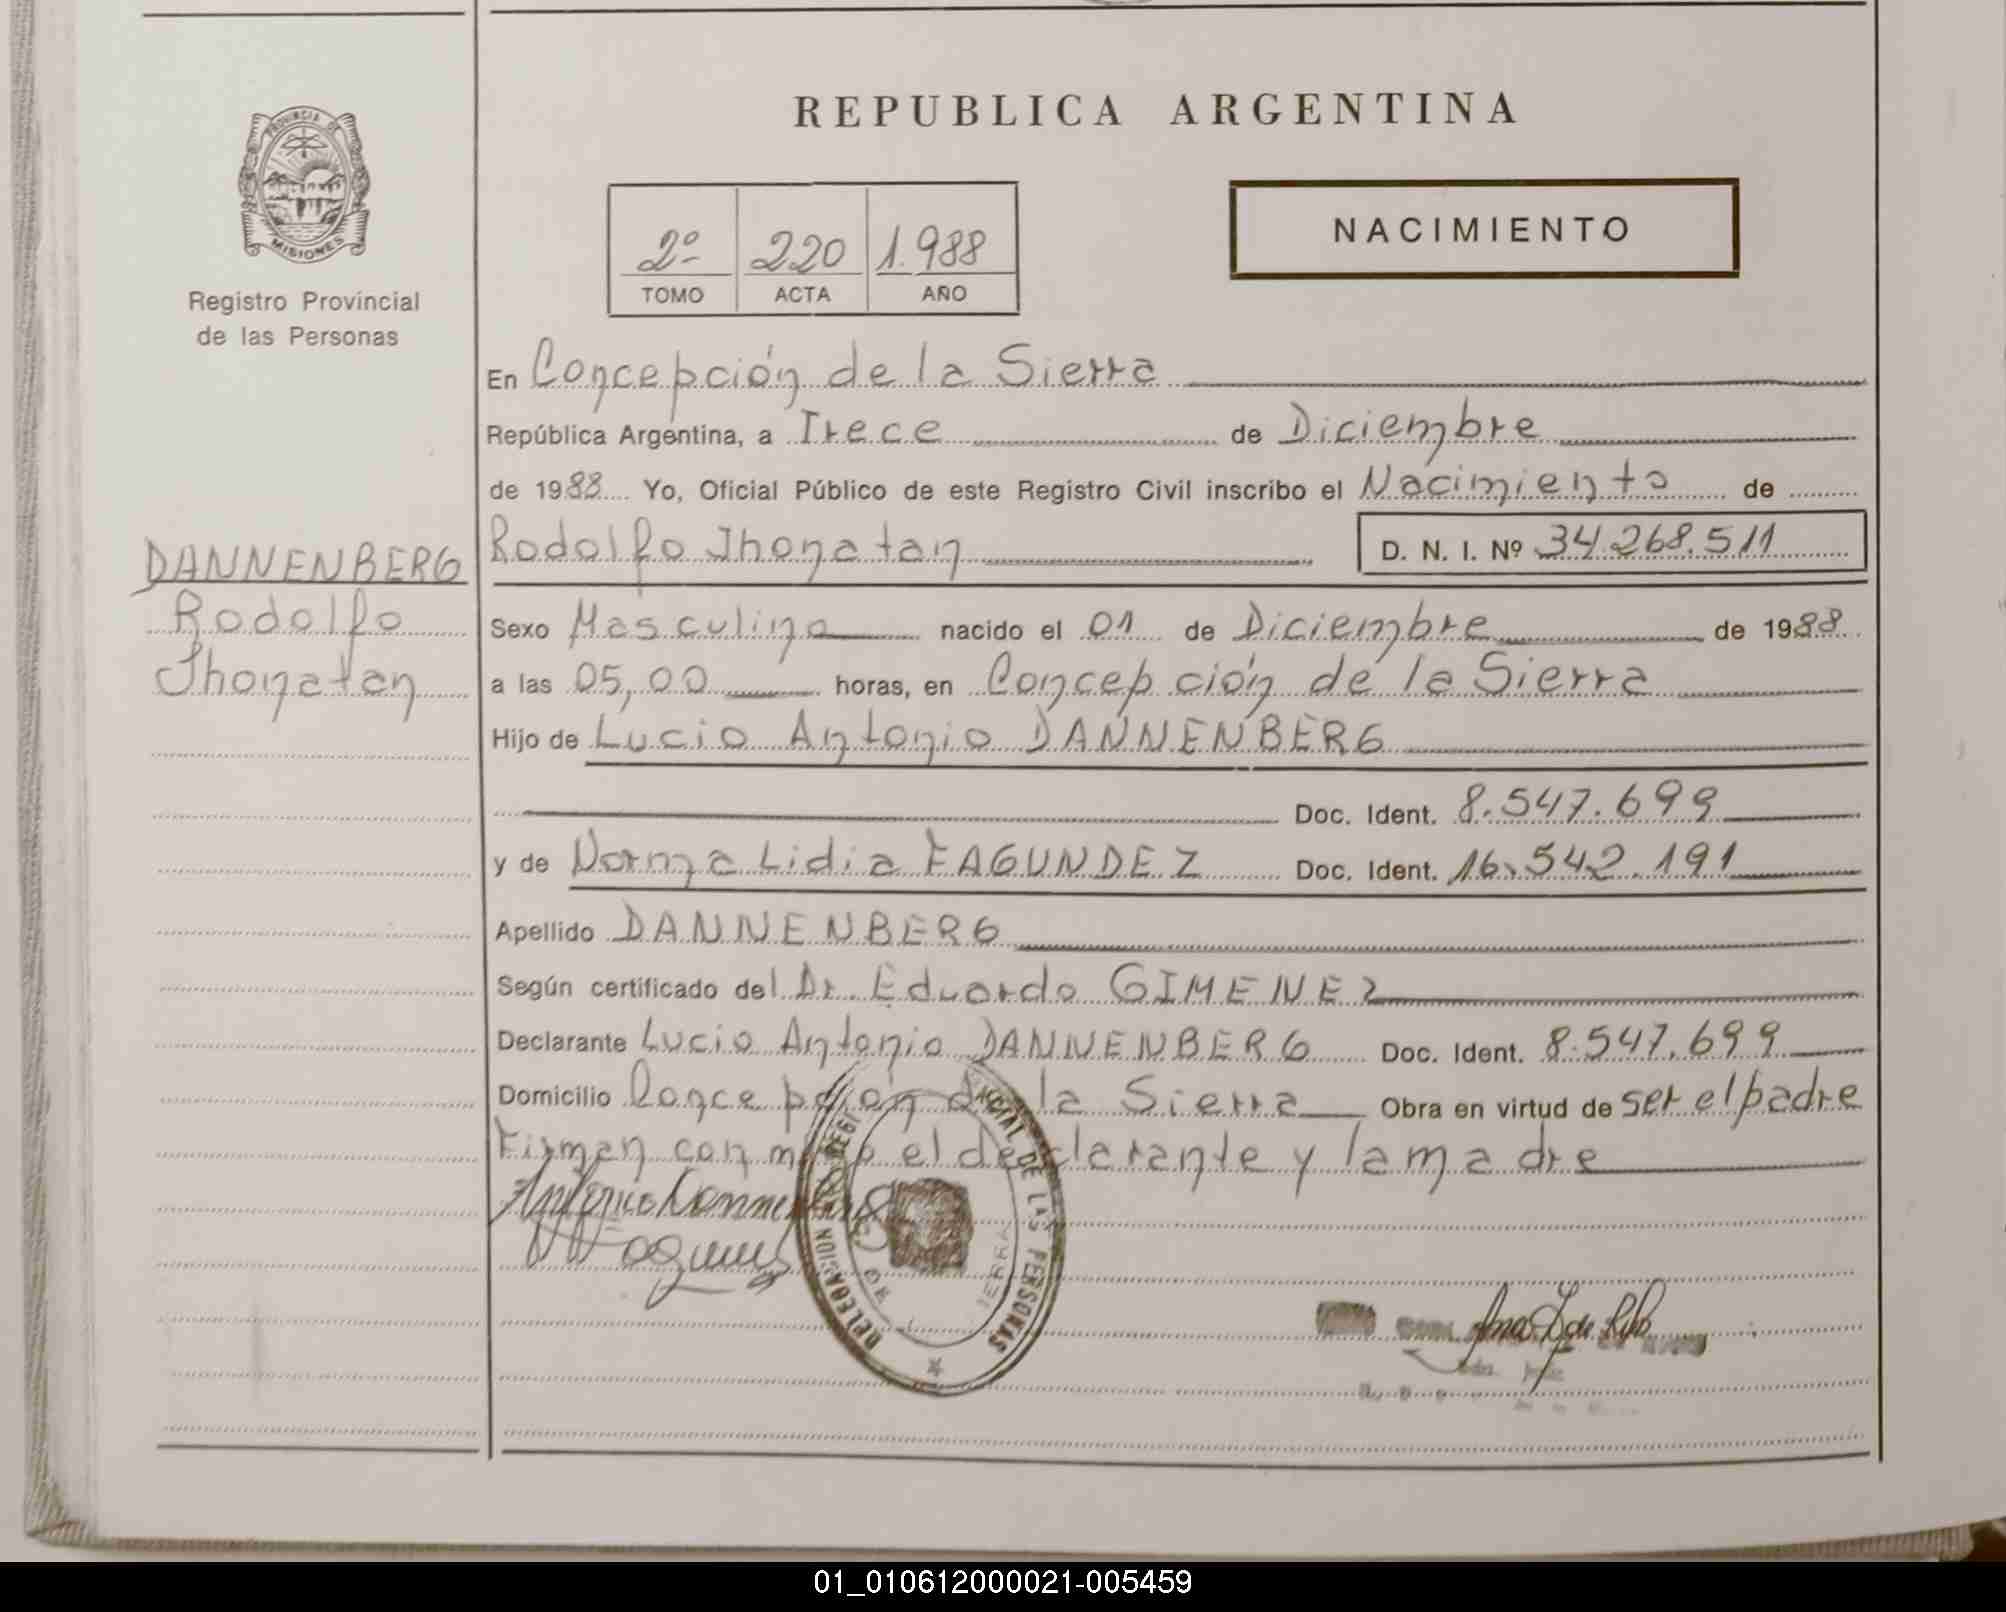 REPUBLICA ARGENTINA
PROVINCIA DE
MISIONES
Registro Provincial
de las Personas
2º 220 1.988
TOMO ACTA AÑO
NACIMIENTO
En Concepción de la Sierra
República Argentina, a Trece de Diciembre
de 1988 Yo, Oficial Público de este Registro Civil inscribo el Nacimiento de
Rodolfo Jhonatan D. N. I. Nº 34.268.511
DANNENBERG
Rodolfo
Jhonatan
Sexo Masculino nacido el 01 de Diciembre de 1988
a las 05,00 horas, en Concepción de la Sierra
Hijo de Lucio Antonio DANNENBERG
Doc. Ident. 8.547.699
y de Norma Lidia FAGUNDEZ Doc. Ident. 16.542.191
Apellido DANNENBERG
Según certificado del Dr. Eduardo GIMENEZ
Declarante Lucio Antonio DANNENBERG Doc. Ident. 8.547.699
Domicilio Concepción de la Sierra Obra en virtud de ser el padre
Firman con migo el declarante y la madre
DELEGACION DE LAS PERSONAS
01_010612000021-005459